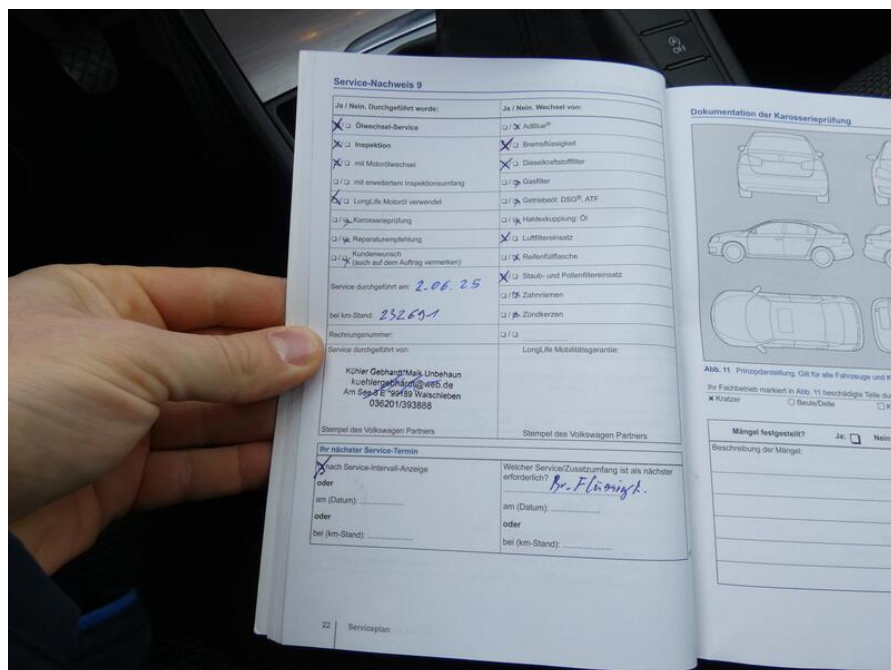 OFF
Service-Nachweis 9
Ja / Nein. Durchgeführt wurde:
Ölwechsel-Service
Inspektion
mit Motorölwechsel
mit erweitertem Inspektionsumfang
LongLife Motoröl verwendet
Karosserieprüfung
Reparaturempfehlung
Kundenwunsch
(auch auf dem Auftrag vermerken)
Service durchgeführt am: 2.06.25
bei km-Stand: 232691
Rechnungsnummer:
Service durchgeführt von:
Kühler Gebhardt*Maik Unbehaun
kuehlergebhardt@web.de
Am See 3 E *99189 Walschleben
036201/393888
Stempel des Volkswagen Partners
Ja / Nein. Wechsel von:
AdBlue®
Bremsflüssigkeit
Dieselkraftstofffilter
Gasfilter
Getriebeöl: DSG®, ATF
Haldexkupplung: Öl
Luftfiltereinsatz
Reifenfüllflasche
Staub- und Pollenfiltereinsatz
Zahnriemen
Zündkerzen
LongLife Mobilitätsgarantie:
Stempel des Volkswagen Partners
Ihr nächster Service-Termin
nach Service-Intervall-Anzeige
oder
am (Datum):
oder
bei (km-Stand):
Welcher Service/Zusatzumfang ist als nächster
erforderlich? Br.Flüssigk.
am (Datum):
oder
bei (km-Stand):
22 Serviceplan
Dokumentation der Karosserieprüfung
Abb. 11 Prinzipdarstellung. Gilt für alle Fahrzeuge und
Ihr Fachbetrieb markiert in Abb. 11 beschädigte Teile
Kratzer Beule/Delle
Mängel festgestellt? Ja: Nein
Beschreibung der Mängel: